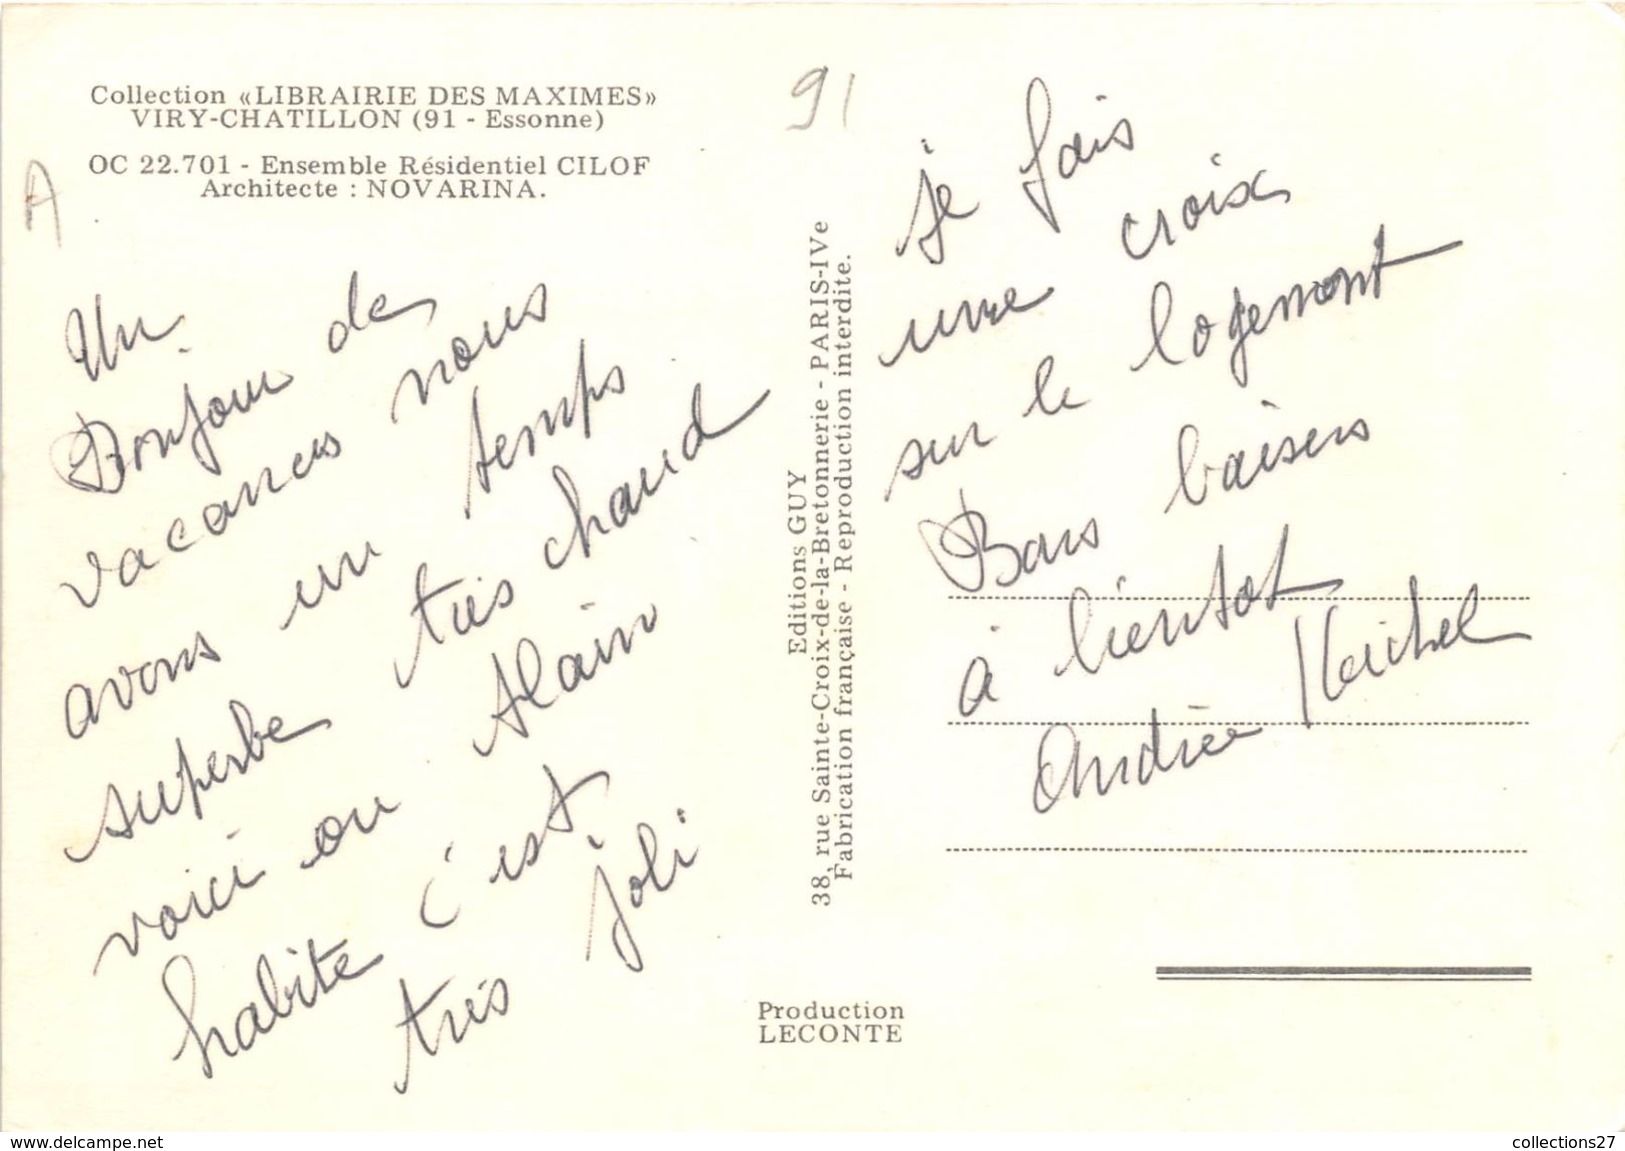 Collection «LIBRAIRIE DES MAXIMES»
VIRY-CHATILLON (91 - Essonne)
OC 22.701 - Ensemble Résidentiel CILOF
Architecte : NOVARINA.
A
91
Un
Bonjour des
vacances nous
avons un temps
superbe très chaud
voici ou Alain
habite c'est
très joli
Editions GUY
38, rue Sainte-Croix-de-la-Bretonnerie - PARIS-IVe
Fabrication française - Reproduction interdite.
Production
LECONTE
je fais
une croix
sur le logement
Bons baisers
à bientot
Andrée Michel
www.delcampe.net
collections27